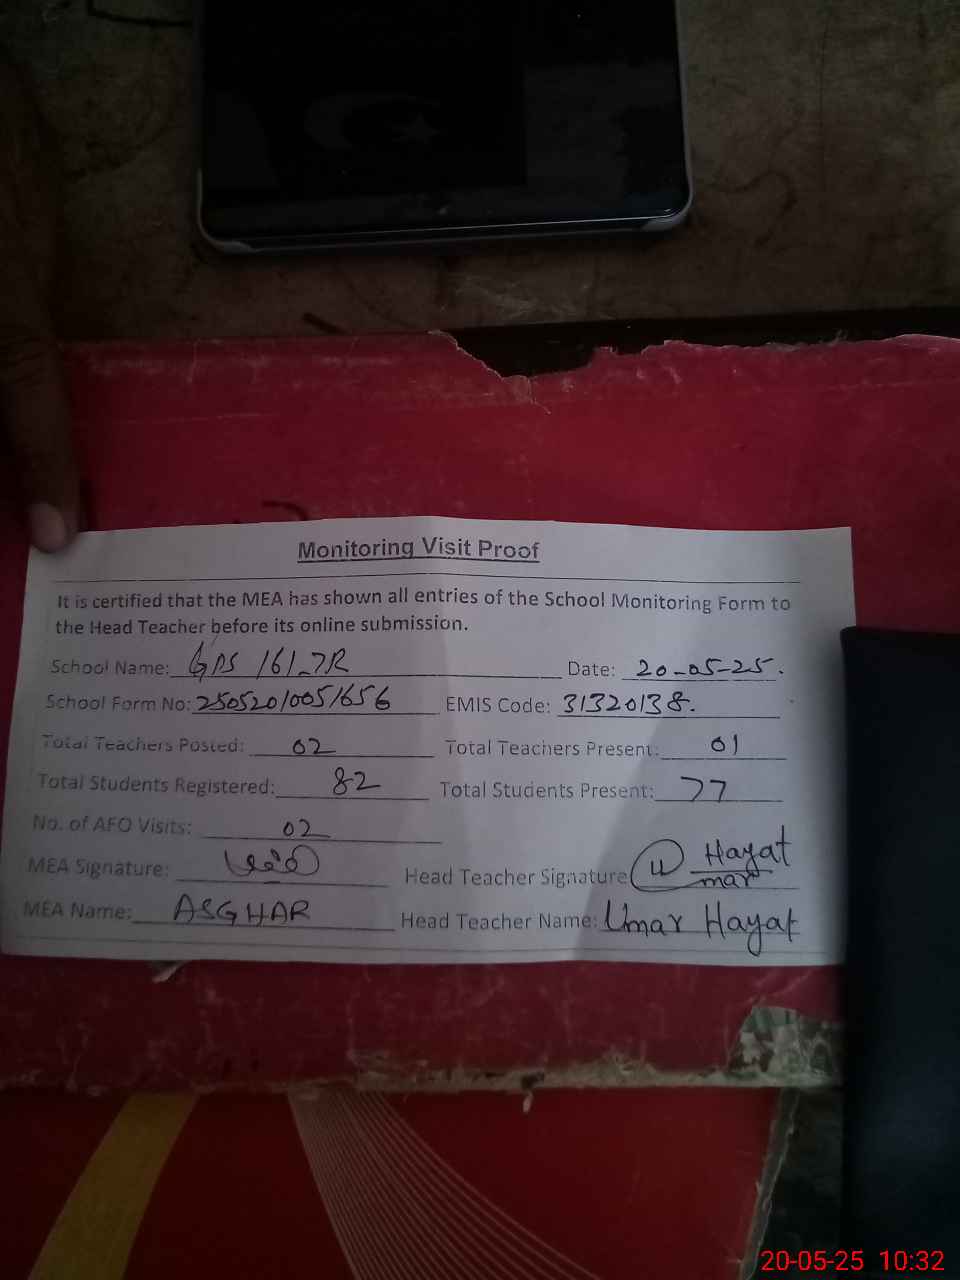 Monitoring Visit Proof
It is certified that the MEA has shown all entries of the School Monitoring Form to
the Head Teacher before its online submission.
School Name: GPS 161-7R Date: 20-05-25.
School Form No: 25052010051656 EMIS Code: 31320138.
Total Teachers Posted: 02 Total Teachers Present: 01
Total Students Registered: 82 Total Students Present: 77
No. of AFO Visits: 02
MEA Signature: Head Teacher Signature Umar Hayat
MEA Name: ASGHAR Head Teacher Name: Umar Hayat
20-05-25 10:32